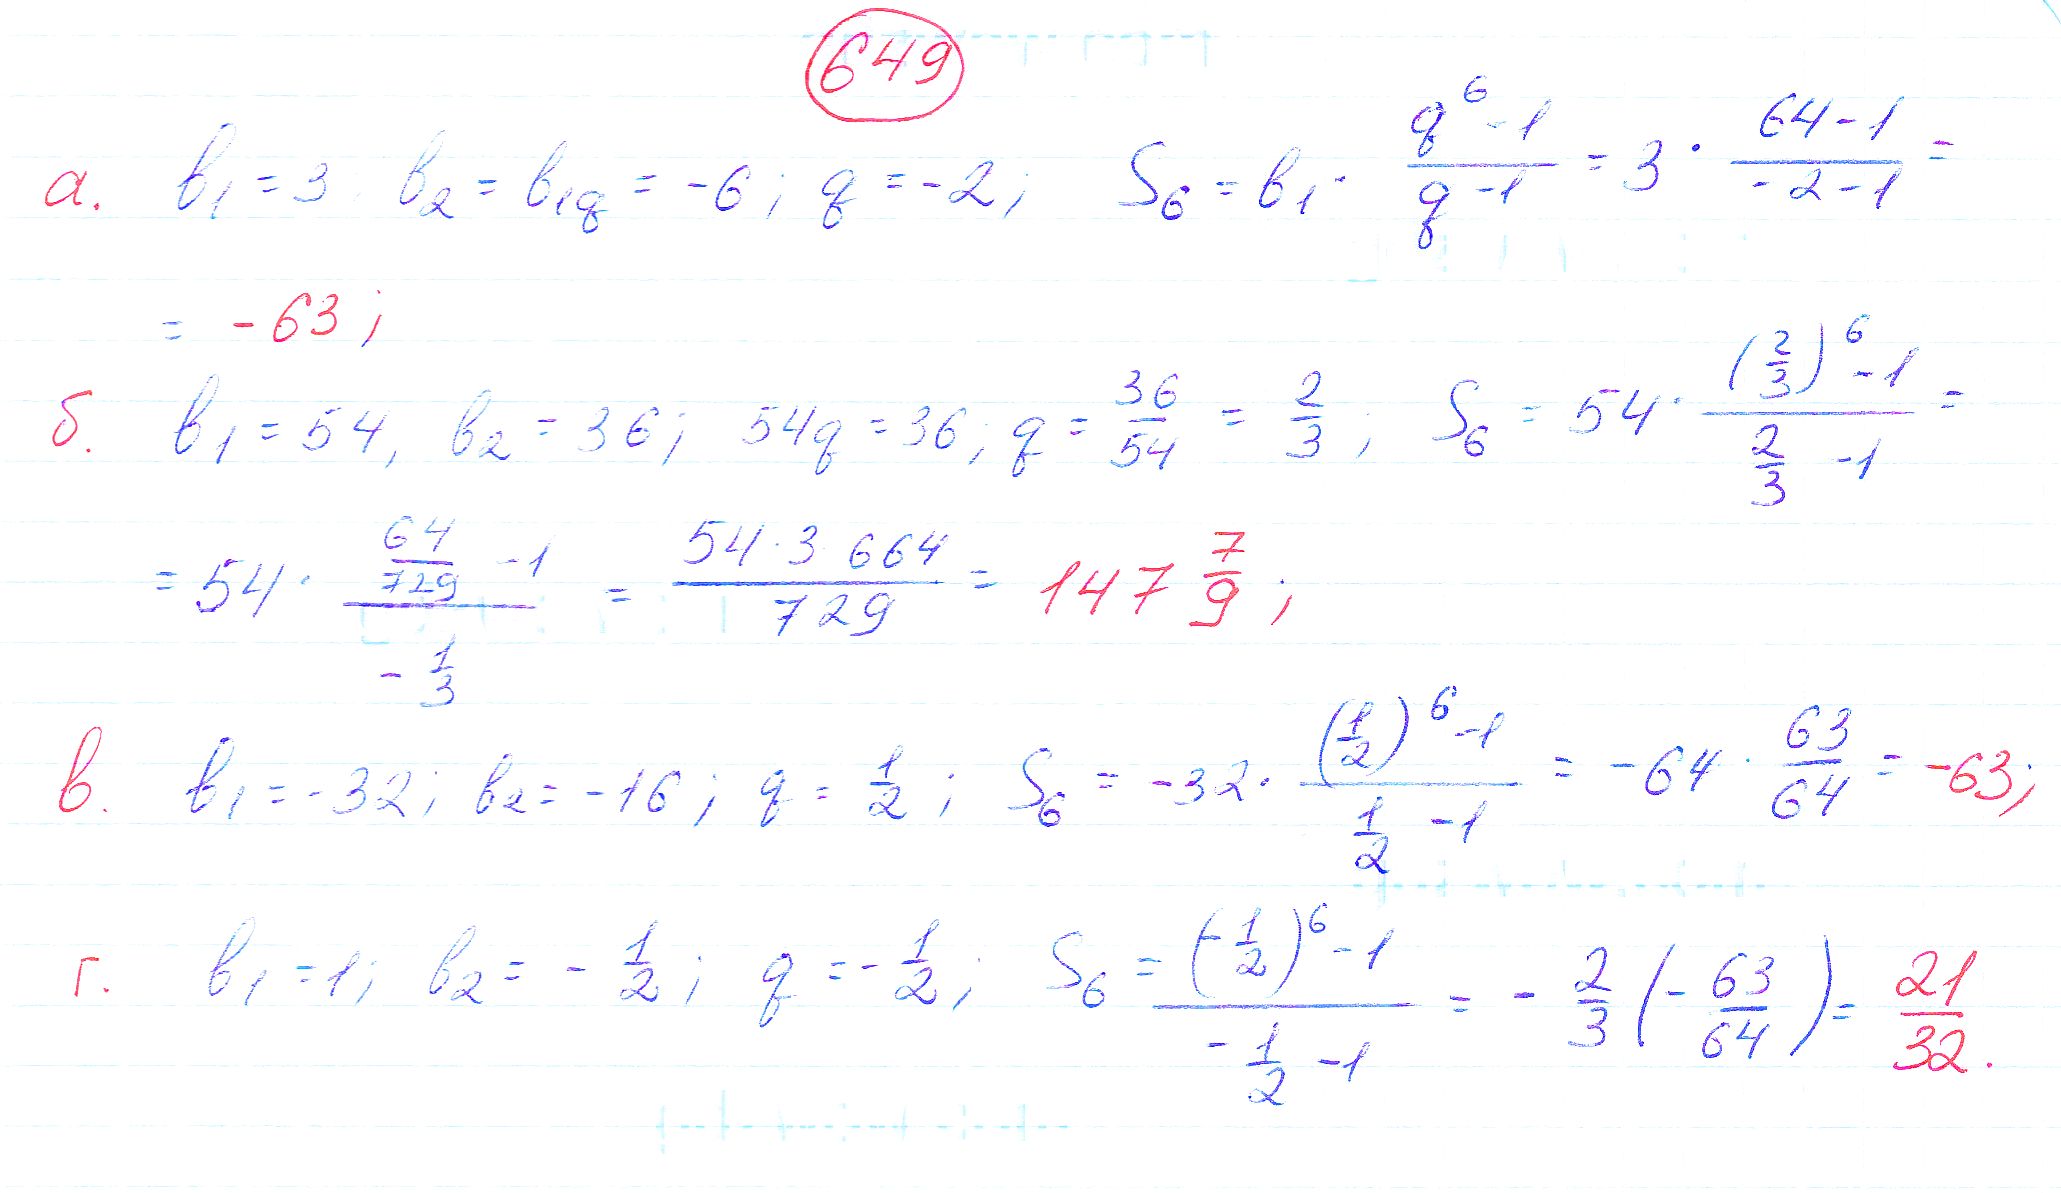 649
а. b₁ = 3; b₂ = b₁q = -6; q = -2; S₆ = b₁ · (q⁶ - 1)/(q - 1) = 3 · (64 - 1)/(-2 - 1) =
= -63;
б. b₁ = 54, b₂ = 36; 54q = 36; q = 36/54 = 2/3; S₆ = 54 · ((2/3)⁶ - 1)/(2/3 - 1) =
= 54 · (64/729 - 1)/(-1/3) = (54 · 3 664)/729 = 147 7/9;
в. b₁ = -32; b₂ = -16; q = 1/2; S₆ = -32 · ((1/2)⁶ - 1)/(1/2 - 1) = -64 · 63/64 = -63;
г. b₁ = 1; b₂ = -1/2; q = -1/2; S₆ = ((-1/2)⁶ - 1)/(-1/2 - 1) = -2/3 (-63/64) = 21/32.